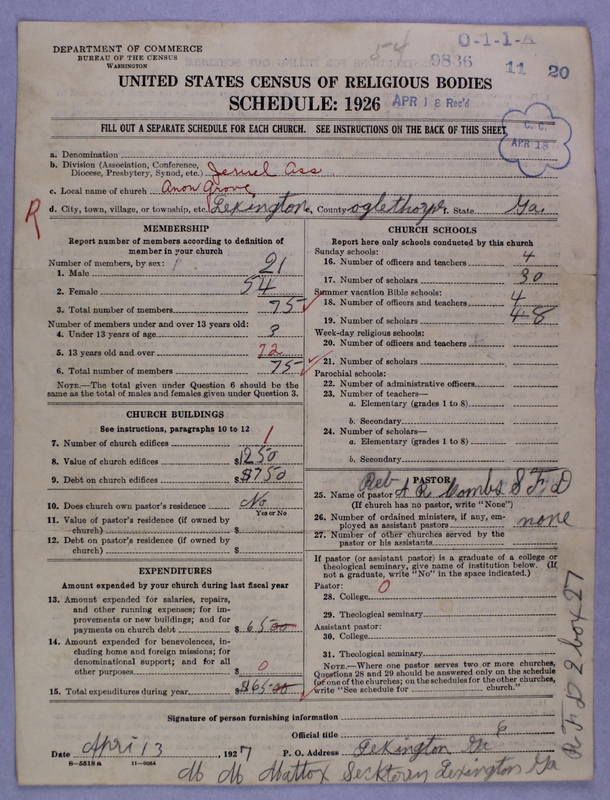 54 O-1-1-A
DEPARTMENT OF COMMERCE
BUREAU OF THE CENSUS
WASHINGTON
9836 11 20
UNITED STATES CENSUS OF RELIGIOUS BODIES
SCHEDULE: 1926 APR 18 Rec'd
FILL OUT A SEPARATE SCHEDULE FOR EACH CHURCH. SEE INSTRUCTIONS ON THE BACK OF THIS SHEET
C. C.
APR 18
a. Denomination
b. Division (Association, Conference, Diocese, Presbytery, Synod, etc.) Jeruel Ass
c. Local name of church Anon Grove
R
d. City, town, village, or township, etc. Lexington e. County oglethorpe f. State Ga.
MEMBERSHIP
Report number of members according to definition of member in your church
Number of members, by sex:
1. Male 21
2. Female 54
3. Total number of members 75
Number of members under and over 13 years old:
4. Under 13 years of age 3
5. 13 years old and over 72
6. Total number of members 75
NOTE.—The total given under Question 6 should be the same as the total of males and females given under Question 3.
CHURCH BUILDINGS
See instructions, paragraphs 10 to 12
7. Number of church edifices 1
8. Value of church edifices $1250
9. Debt on church edifices $$750
10. Does church own pastor's residence No
Yes or No
11. Value of pastor's residence (if owned by church) $
12. Debt on pastor's residence (if owned by church) $
EXPENDITURES
Amount expended by your church during last fiscal year
13. Amount expended for salaries, repairs, and other running expenses; for improvements or new buildings; and for payments on church debt $ 6500
14. Amount expended for benevolences, including home and foreign missions; for denominational support; and for all other purposes $ 0
15. Total expenditures during year $$6500
CHURCH SCHOOLS
Report here only schools conducted by this church
Sunday schools:
16. Number of officers and teachers 4
17. Number of scholars 30
Summer vacation Bible schools:
18. Number of officers and teachers 4
19. Number of scholars 48
Week-day religious schools:
20. Number of officers and teachers
21. Number of scholars
Parochial schools:
22. Number of administrative officers
23. Number of teachers—
a. Elementary (grades 1 to 8)
b. Secondary
24. Number of scholars—
a. Elementary (grades 1 to 8)
b. Secondary
PASTOR
25. Name of pastor Reb A R Combs S F D
(If church has no pastor, write "None")
26. Number of ordained ministers, if any, employed as assistant pastors none
27. Number of other churches served by the pastor or his assistants
If pastor (or assistant pastor) is a graduate of a college or theological seminary, give name of institution below. (If not a graduate, write "No" in the space indicated.)
Pastor:
28. College 0
29. Theological seminary
Assistant pastor:
30. College
31. Theological seminary
NOTE.—Where one pastor serves two or more churches, Questions 28 and 29 should be answered only on the schedule for one of the churches; on the schedules for the other churches, write "See schedule for church."
R F D 2 box 27
Signature of person furnishing information
Official title
Date April 13, 1927 P. O. Address Lexington Ga
8—5518 a 11—9084
M M Mattox Secktory Lexington Ga